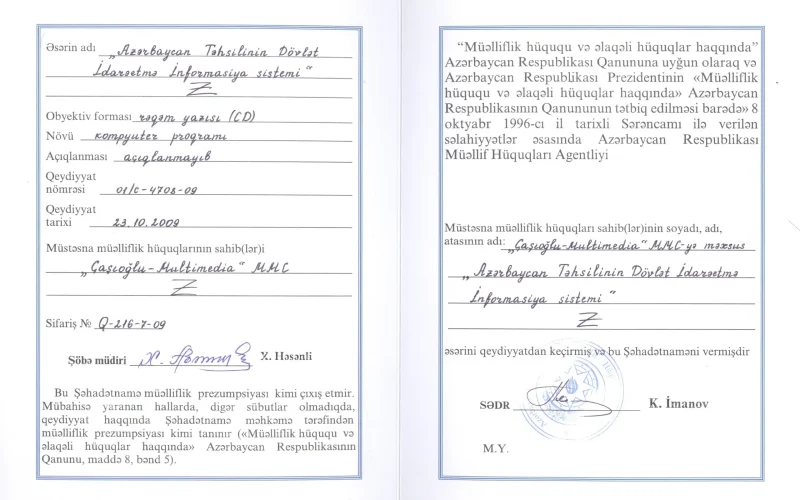 Əsərin adı „Azərbaycan Təhsilinin Dövlət
İdarəetmə İnformasiya sistemi“
Z
Obyektiv forması rəqəm yazısı (CD)
Növü kompyuter proqramı
Açıqlanması açıqlanmayıb
Qeydiyyat
nömrəsi 01/C-4708-09
Qeydiyyat
tarixi 23.10.2009
Müstəsna müəlliflik hüquqlarının sahib(lər)i
„Çaşıoğlu-Multimedia“ MMC
Z
Sifariş № Q-216-7-09
Şöbə müdiri X. Həsənli
Bu Şəhadətnamə müəlliflik prezumpsiyası kimi çıxış etmir.
Mübahisə yaranan hallarda, digər sübutlar olmadıqda,
qeydiyyat haqqında Şəhadətnamə məhkəmə tərəfindən
müəlliflik prezumpsiyası kimi tanınır («Müəlliflik hüququ və
əlaqəli hüquqlar haqqında» Azərbaycan Respublikasının
Qanunu, maddə 8, bənd 5).
“Müəlliflik hüququ və əlaqəli hüquqlar haqqında”
Azərbaycan Respublikası Qanununa uyğun olaraq və
Azərbaycan Respublikası Prezidentinin «Müəlliflik
hüququ və əlaqəli hüquqlar haqqında» Azərbaycan
Respublikasının Qanununun tətbiq edilməsi barədə» 8
oktyabr 1996-cı il tarixli Sərəncamı ilə verilən
səlahiyyətlər əsasında Azərbaycan Respublikası
Müəllif Hüquqları Agentliyi
Müstəsna müəlliflik hüquqları sahib(lər)inin soyadı, adı,
atasının adı: „Çaşıoğlu-Multimedia“ MMC-yə məxsus
„Azərbaycan Təhsilinin Dövlət İdarəetmə
İnformasiya sistemi“
Z
əsərini qeydiyyatdan keçirmiş və bu Şəhadətnaməni vermişdir
SƏDR K. İmanov
M.Y.